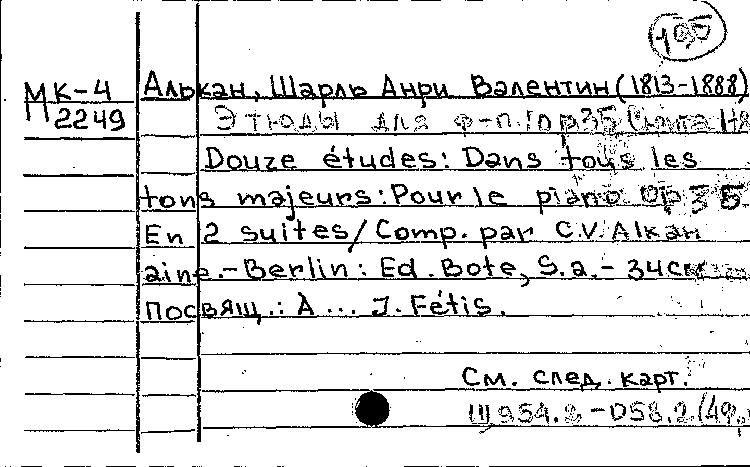 195
МК-4 Алькан, Шарль Анри Валентин (1813-1888)
М 2249 Этюды для ф-п. Op 35
Douze études: Dans tous les
tons majeurs: Pour le piano Op 35
En 2 suites / Comp. par C.V. Alkan
aine. - Berlin: Ed. Bote, S.a. - 34см
посвящ.: À ... J. Fétis.
См. след. карт.
Щ954.2-D58.2 (49